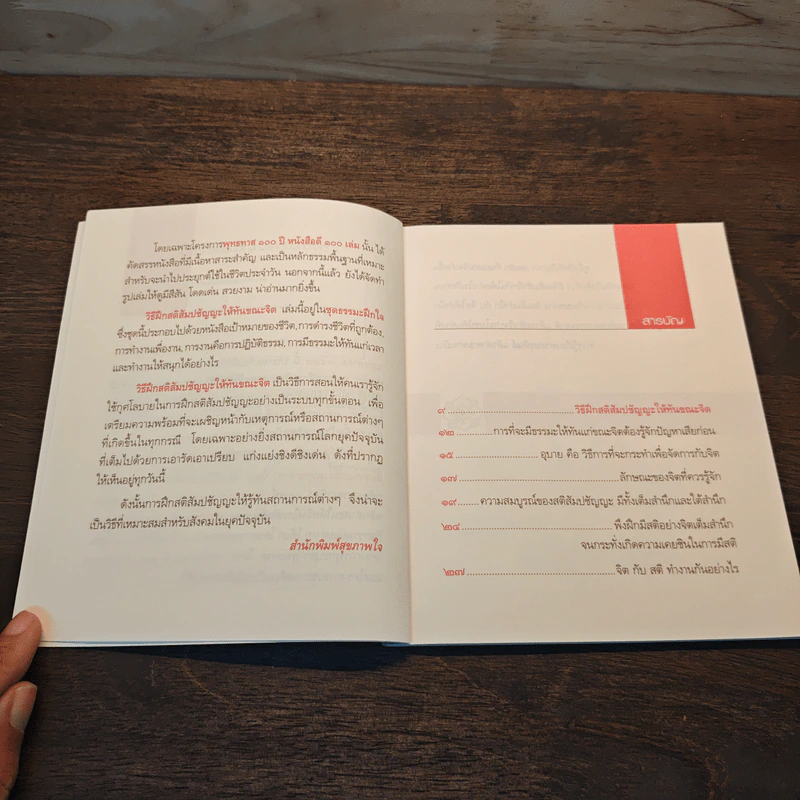 โดยเฉพาะโครงการพุทธทาส ๑๐๐ ปี หนังสือดี ๑๐๐ เล่ม นั้น ได้
คัดสรรหนังสือที่มีเนื้อหาสาระสำคัญ และเป็นหลักธรรมพื้นฐานที่เหมาะ
สำหรับจะนำไปประยุกต์ใช้ในชีวิตประจำวัน นอกจากนี้แล้ว ยังได้จัดทำ
รูปเล่มให้ดูมีสีสัน โดดเด่น สวยงาม น่าอ่านมากยิ่งขึ้น
วิธีฝึกสติสัมปชัญญะให้ทันขณะจิต เล่มนี้อยู่ในชุดธรรมะฝึกใจ
ซึ่งชุดนี้ประกอบไปด้วยหนังสือเป้าหมายของชีวิต, การดำรงชีวิตที่ถูกต้อง,
การทำงานเพื่องาน, การงานคือการปฏิบัติธรรม, การมีธรรมะให้ทันแก่เวลา
และทำงานให้สนุกได้อย่างไร
วิธีฝึกสติสัมปชัญญะให้ทันขณะจิต เป็นวิธีการสอนให้คนเรารู้จัก
ใช้กุศโลบายในการฝึกสติสัมปชัญญะอย่างเป็นระบบทุกขั้นตอน เพื่อ
เตรียมความพร้อมที่จะเผชิญหน้ากับเหตุการณ์หรือสถานการณ์ต่างๆ
ที่เกิดขึ้นในทุกกรณี โดยเฉพาะอย่างยิ่งสถานการณ์โลกยุคปัจจุบัน
ที่เต็มไปด้วยการเอารัดเอาเปรียบ แก่งแย่งชิงดีชิงเด่น ดังที่ปรากฏ
ให้เห็นอยู่ทุกวันนี้
ดังนั้นการฝึกสติสัมปชัญญะให้รู้ทันสถานการณ์ต่างๆ จึงน่าจะ
เป็นวิธีที่เหมาะสมสำหรับสังคมในยุคปัจจุบัน
สำนักพิมพ์สุขภาพใจ
สารบัญ
๙ ........ วิธีฝึกสติสัมปชัญญะให้ทันขณะจิต
๑๒ ........ การที่จะมีธรรมะให้ทันแก่ขณะจิตต้องรู้จักปัญหาเสียก่อน
๑๕ ........ อุบาย คือ วิธีการที่จะกระทำเพื่อจัดการกับจิต
๑๗ ........ ลักษณะของจิตที่ควรรู้จัก
๑๙ ........ ความสมบูรณ์ของสติสัมปชัญญะ มีทั้งเต็มสำนึกและใต้สำนึก
๒๔ ........ พึงฝึกมีสติอย่างจิตเต็มสำนึก
จนกระทั่งเกิดความเคยชินในการมีสติ
๒๗ ........ จิต กับ สติ ทำงานกันอย่างไร